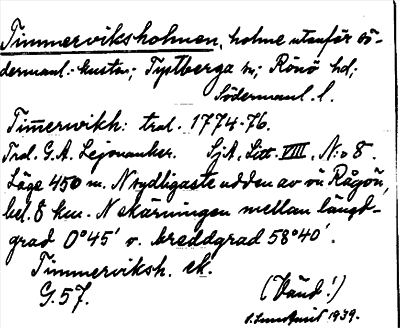 Timmerviksholmen, holme utanför Sö-
dermanl.-kusten; Tystberga sn; Rönö hd;
Södermanl. l.
Tim̄erwikh: trol. 1774-76.
Trol. G.A. Lejonanker. SjA. Litt. VIII, N:o 8.
Läge 450 m. N sydligaste udden av ön Rågön,
bel. 8 km. N skärningen mellan längd-
grad 0°45' o. breddgrad 58°40'.
Timmerviksh. ek.
G. 57.
(Vänd!)
1939.